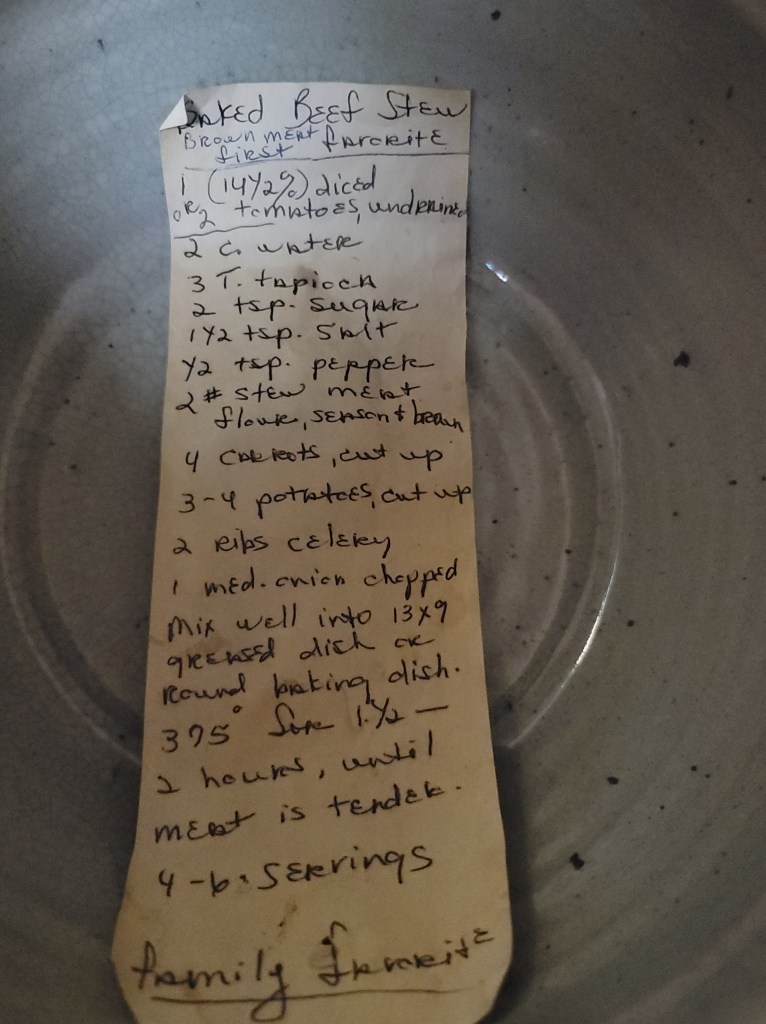 Baked Beef Stew
Brown meat favorite
first
1 (14 1/2 oz) diced
or 2 tomatoes, undrained
2 c. water
3 T. tapioca
2 tsp. sugar
1 1/2 tsp. salt
1/2 tsp. pepper
2 # stew meat
flour, season & brown
4 carrots, cut up
3-4 potatoes, cut up
2 ribs celery
1 med. onion chopped
Mix well into 13x9
greased dish or
round baking dish.
375° for 1 1/2 —
2 hours, until
meat is tender.
4-6 servings
family favorite